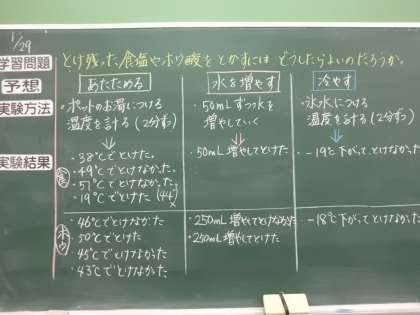 1/29
学習問題
とけ残った食塩やホウ酸をとかすには どうしたらよいのだろうか。
予想
あたためる
水を増やす
冷やす
実験方法
・ポットのお湯につける
温度を計る(2分ずつ)
・50mLずつ水を
増やしていく
・氷水につける
温度を計る(2分ずつ)
実験結果
・38℃でとけた。
・49℃でとけなかった。
・51℃でとけなかった。
・19℃でとけた
50mL増やしてとけた
-19℃下がってとけなかった
ホウ
・46℃でとけなかった
・50℃でとけた
・45℃でとけてなかった
・43℃でとけなかった
・250mL増やしてとけなかった
・250mL増やしてとけた
-18℃下がってとけなかった